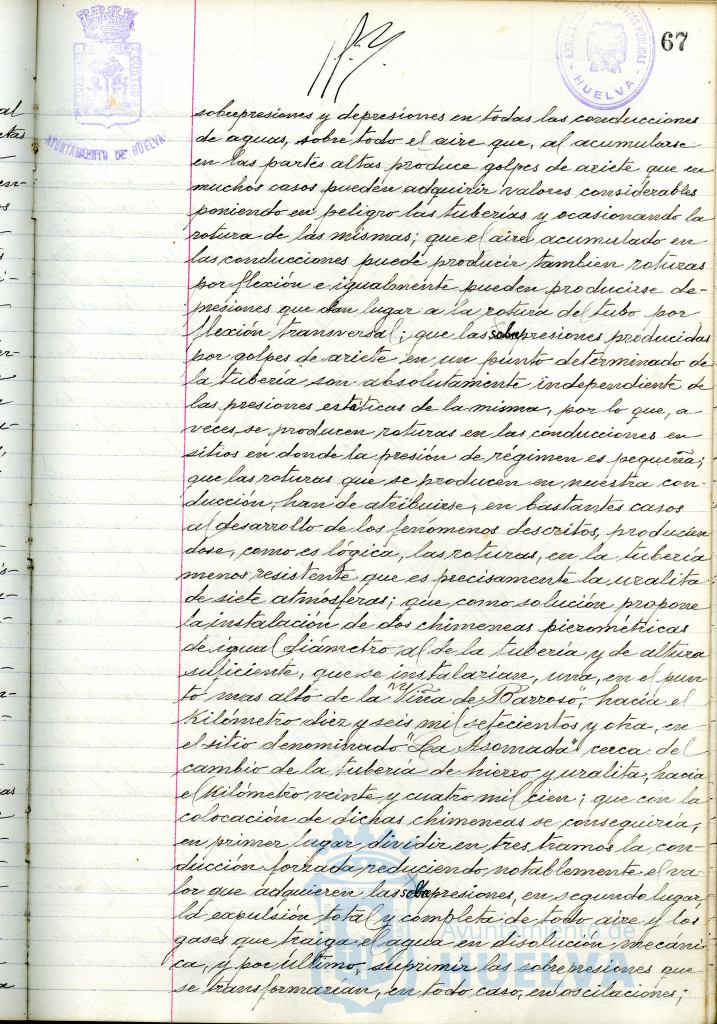 67
AYUNTAMIENTO DE HUELVA
HUELVA
sobrepresiones y depresiones en todas las conducciones
de aguas, sobre todo el aire que, al acumularse
en las partes altas produce golpes de ariete que en
muchos casos pueden adquirir valores considerables
poniendo en peligro las tuberias y ocasionando la
rotura de las mismas; que el aire acumulado en
las conducciones puede producir tambien roturas
por flexión e igualmente pueden producirse de-
presiones que dan lugar a la rotura del tubo por
flexión transversal; que las sobrepresiones producidas
por golpes de ariete en un punto determinado de
la tubería son absolutamente independiente de
las presiones estáticas de la misma, por lo que, a
veces, se producen roturas en las conducciones en
sitios en donde la presión de régimen es pequeña;
que las roturas que se producen en nuestra con-
ducción, han de atribuirse, en bastantes casos
al desarrollo de los fenómenos descritos, producien
dose, como es lógica, las roturas, en la tubería
menos resistente que es precisamente la uralita
de siete atmósferas; que como solución propone
la instalación de dos chimeneas piezométricas
de igual diámetro al de la tubería y de altura
suficiente, que se instalarían, una, en el pun-
to mas alto de la "Viña de Barroso", hacia el
Kilómetro diez y seis mil setecientos y otra, en
el sitio denominado "La Asomada" cerca del
cambio de la tubería de hierro y uralita, hacia
el Kilómetro, veinte y cuatro mil cien; que con la
colocación de dichas chimeneas se conseguiría,
en primer lugar, dividir en tres tramos la con-
ducción forzada reduciendo, notablemente el va-
lor que adquieren las sobrepresiones, en segundo lugar,
la expulsión total y completa de todo aire y los
gases que traiga el agua en disolución mecáni
ca, y por último, suprimir las sobrepresiones que
se transformarían, en todo caso, en oscilaciones;
Ayuntamiento de
HUELVA